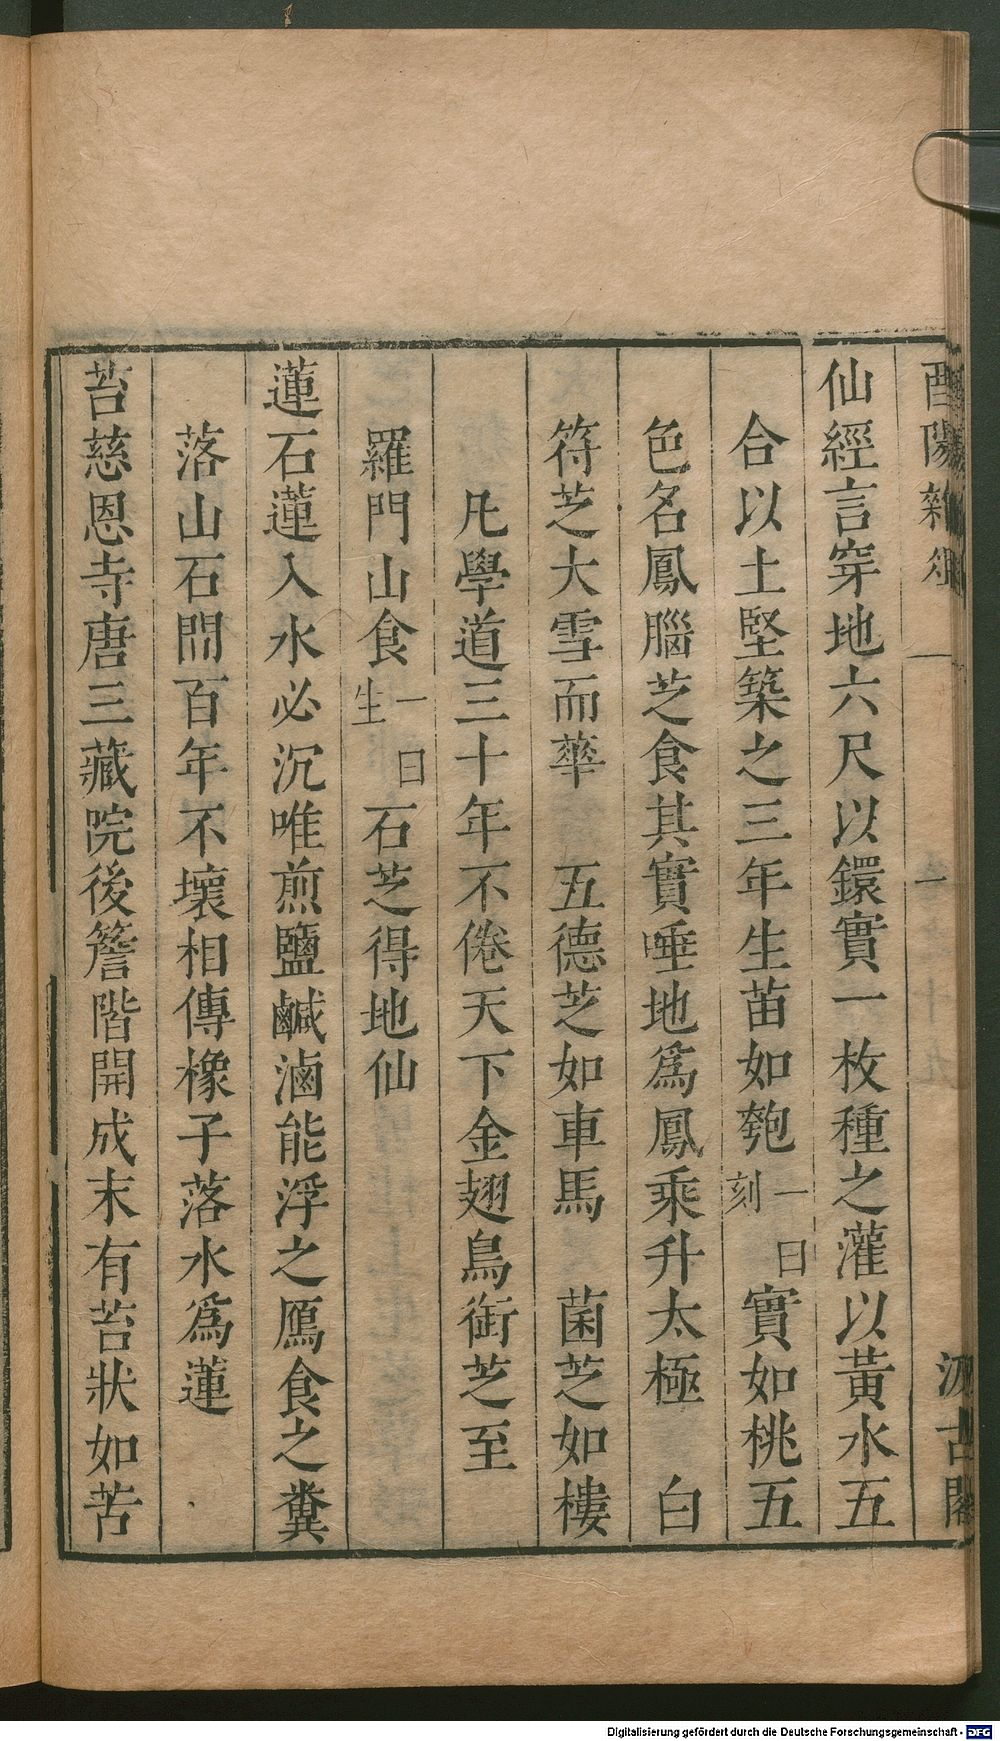 酉陽雜俎 卷一 十九 汲古閣
仙經言穿地六尺以鐶實一枚種之灌以黃水五
合以土堅築之三年生苗如匏一曰刻實如桃五
色名鳳腦芝食其實唾地爲鳳乘升太極 白
符芝大雪而華 五德芝如車馬 菌芝如樓
凡學道三十年不倦天下金翅鳥銜芝至
羅門山食一曰生石芝得地仙
蓮石蓮入水必沉唯煎鹽鹹滷能浮之鴈食之糞
落山石間百年不壞相傳橡子落水爲蓮
苔慈恩寺唐三藏院後簷階開成末有苔狀如苦
Digitalisierung gefördert durch die Deutsche Forschungsgemeinschaft - DFG